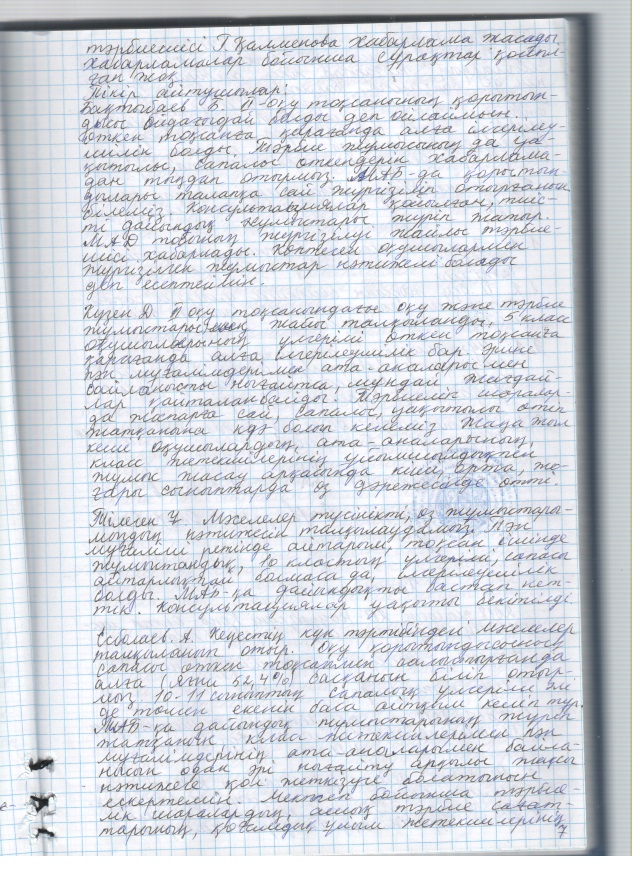 тәрбиешісі Г. Қалменова хабарлама жасады
хабарламалар бойынша сұрақтар қойыл-
ған жоқ
Пікір айтушылар:
Бақтыбаев Б. ІІ-оқу тоқсанының қорытын-
дысы ойдағыдай болды деп ойлаймын.
Өткен тоқсанға қарағанда алға ілгерілеу-
шілік болды. Тәрбие жұмысының да уа-
қытылы, сапалы өткендерін хабарлама-
дан тыңдап отырмыз. МАБ-да қорытын-
дылары талапқа сай жүргізіліп отырғанын
білеміз. Консультациялар қойылған, тиіс-
ті дайындық жұмыстары жүріп жатыр.
МАД тобының жүргізілуі жайлы тәрбие-
шісі хабарлады. Көптеген оқушылармен
жүргізілген жұмыстар нәтижелі болады
деп есептеймін.
Кузен Д. ІІ оқу тоқсанындағы оқу және тәрбие
жұмыстары жайы талқыланды, 5 класс
оқушыларының үлгерімі өткен тоқсанға
қарағанда алға ілгерілеушілік бар. Әрине
пән мұғалімдерімен ата-аналарымен
байланысты нығайтса, мұндай жағдай-
лар қайталанбайды. Тәрбиелік шаралар-
да жоспарға сай, сапалы, уақытылы өтіп
жатқанына куә болып келеміз. Жаңа жыл
кеші оқушылардың, ата-аналарының,
класс жетекшілерінің ұйымшылдықпен
жұмыс жасау арқасында кіші, орта, жо-
ғары сыныптарда өз дәрежесінде өтті.
Тілеген Ұ. Мәселелер түсінікті, өз жұмыстары-
мыздың нәтижесін талқылаудамыз. Пән
мұғалімі ретінде айтарым, тоқсан ішінде
жұмыстандық, 10 кластың үлгерімі, сапасы
айтарлықтай болмаса да, ілгерілеушілік
болды. МАБ-қа дайындықты бастап кет-
тік. Консультациялар уақыты бекітілді.
Есболаев. А. Кеңестің күн тәртібіндегі мәселелер
талқыланып отыр. Оқу қорытындысының
сапасы өткен тоқсанмен салыстырғанда
алға (яғни 52,4%) басқанын біліп отыр-
мыз, 10-11 сыныптың сапалық үлгерімі әлі
де төмен екенін баса айтқым келіп тұр.
МАБ-қа дайындық жұмыстарының жүріп
жатқанын, класс жетекшілерімен пән
мұғалімдерінің ата-аналармен байла-
нысын одан әрі нығайту арқылы жақсы
нәтижеге қол жеткізуге болатынын
ескертемін. Мектеп бойынша тәрбие-
лік шаралардың, ашық тәрбие сағат-
тарының, қоғамдық ұйым жетекшілерінің
7